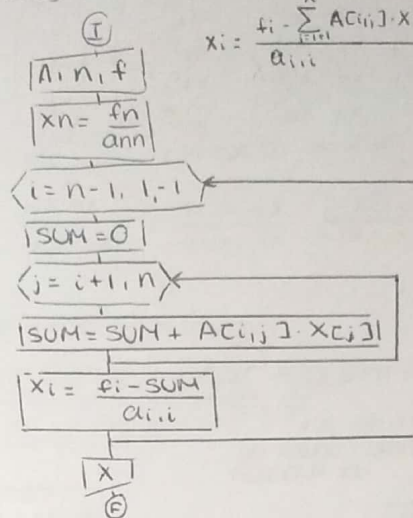 I
xi = fi - Σ i=i+1 A[i,j] · X
ai,i
A, n, f
xn = fn
ann
i = n-1, 1, -1
SUM=0
j = i+1, n
SUM = SUM + A[i,j] · X[j]
xi = fi - SUM
ai,i
X
F